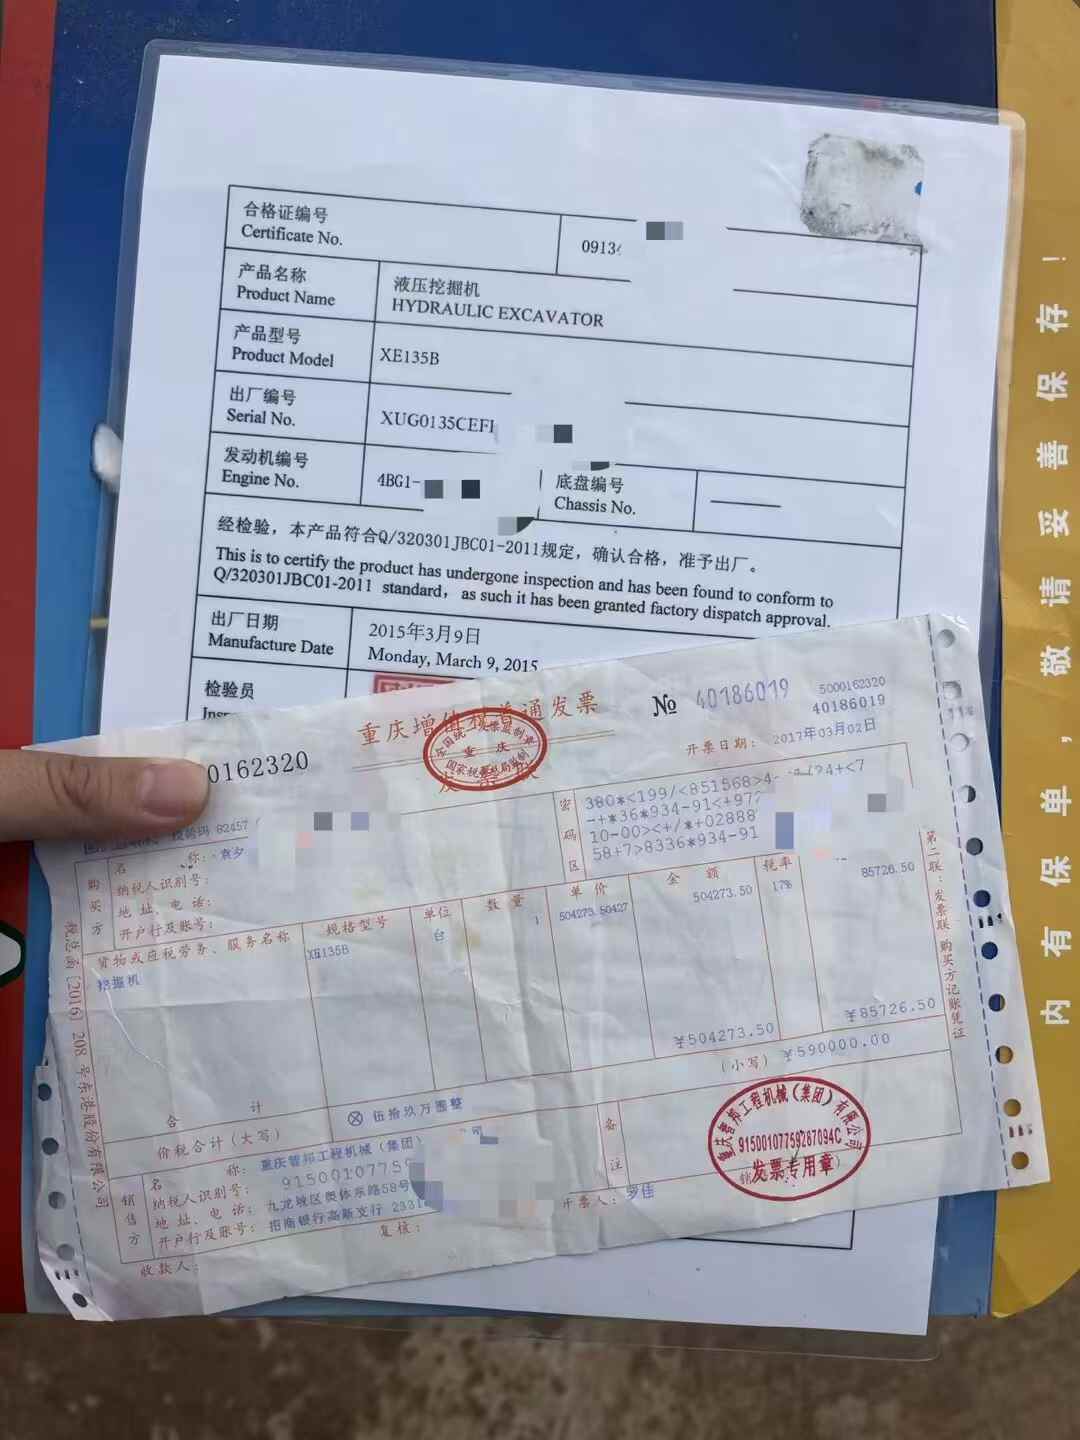 合格证编号
Certificate No.
0913
产品名称
Product Name
液压挖掘机
HYDRAULIC EXCAVATOR
产品型号
Product Model
XE135B
出厂编号
Serial No.
XUG0135CEF
发动机编号
Engine No.
4BG1-
底盘编号
Chassis No.
经检验，本产品符合Q/320301JBC01-2011规定，确认合格，准予出厂。
This is to certify the product has undergone inspection and has been found to conform to
Q/320301JBC01-2011 standard, as such it has been granted factory dispatch approval.
出厂日期
Manufacture Date
2015年3月9日
Monday, March 9, 2015
检验员
内有保单，敬请妥善保存！
0162320
重庆增值税普通发票
全国统一发票监制章
重庆
国家税务总局监制
№ 40186019
5000162320
40186019
开票日期： 2017年03月02日
校验码 82457
购买方
名 称：
纳税人识别号：
地 址、电 话：
开户行及账号：
密码区
380*<199/<851568>4-
-+*36*934-91<+97
10-00><+/*+02888
58+7>8336*934-91
货物或应税劳务、服务名称
规格型号
单位
数 量
单 价
金 额
税率
挖掘机
XE135B
台
1
504273.50427
504273.50
17%
85726.50
合 计
¥504273.50
¥85726.50
价税合计（大写）
ⓧ 伍拾玖万圆整
（小写） ¥590000.00
销售方
名 称： 重庆管邦工程机械（集团）
纳税人识别号： 9150010775
地 址、电 话： 九龙坡区奥体东路58号
开户行及账号： 招商银行高新支行 2331
备注
重庆管邦工程机械（集团）有限公司
91500107759287094C
发票专用章
收款人：
复核：
开票人： 罗佳
第二联：发票联 购买方记账凭证
税总函〔2016〕208号东港股份有限公司